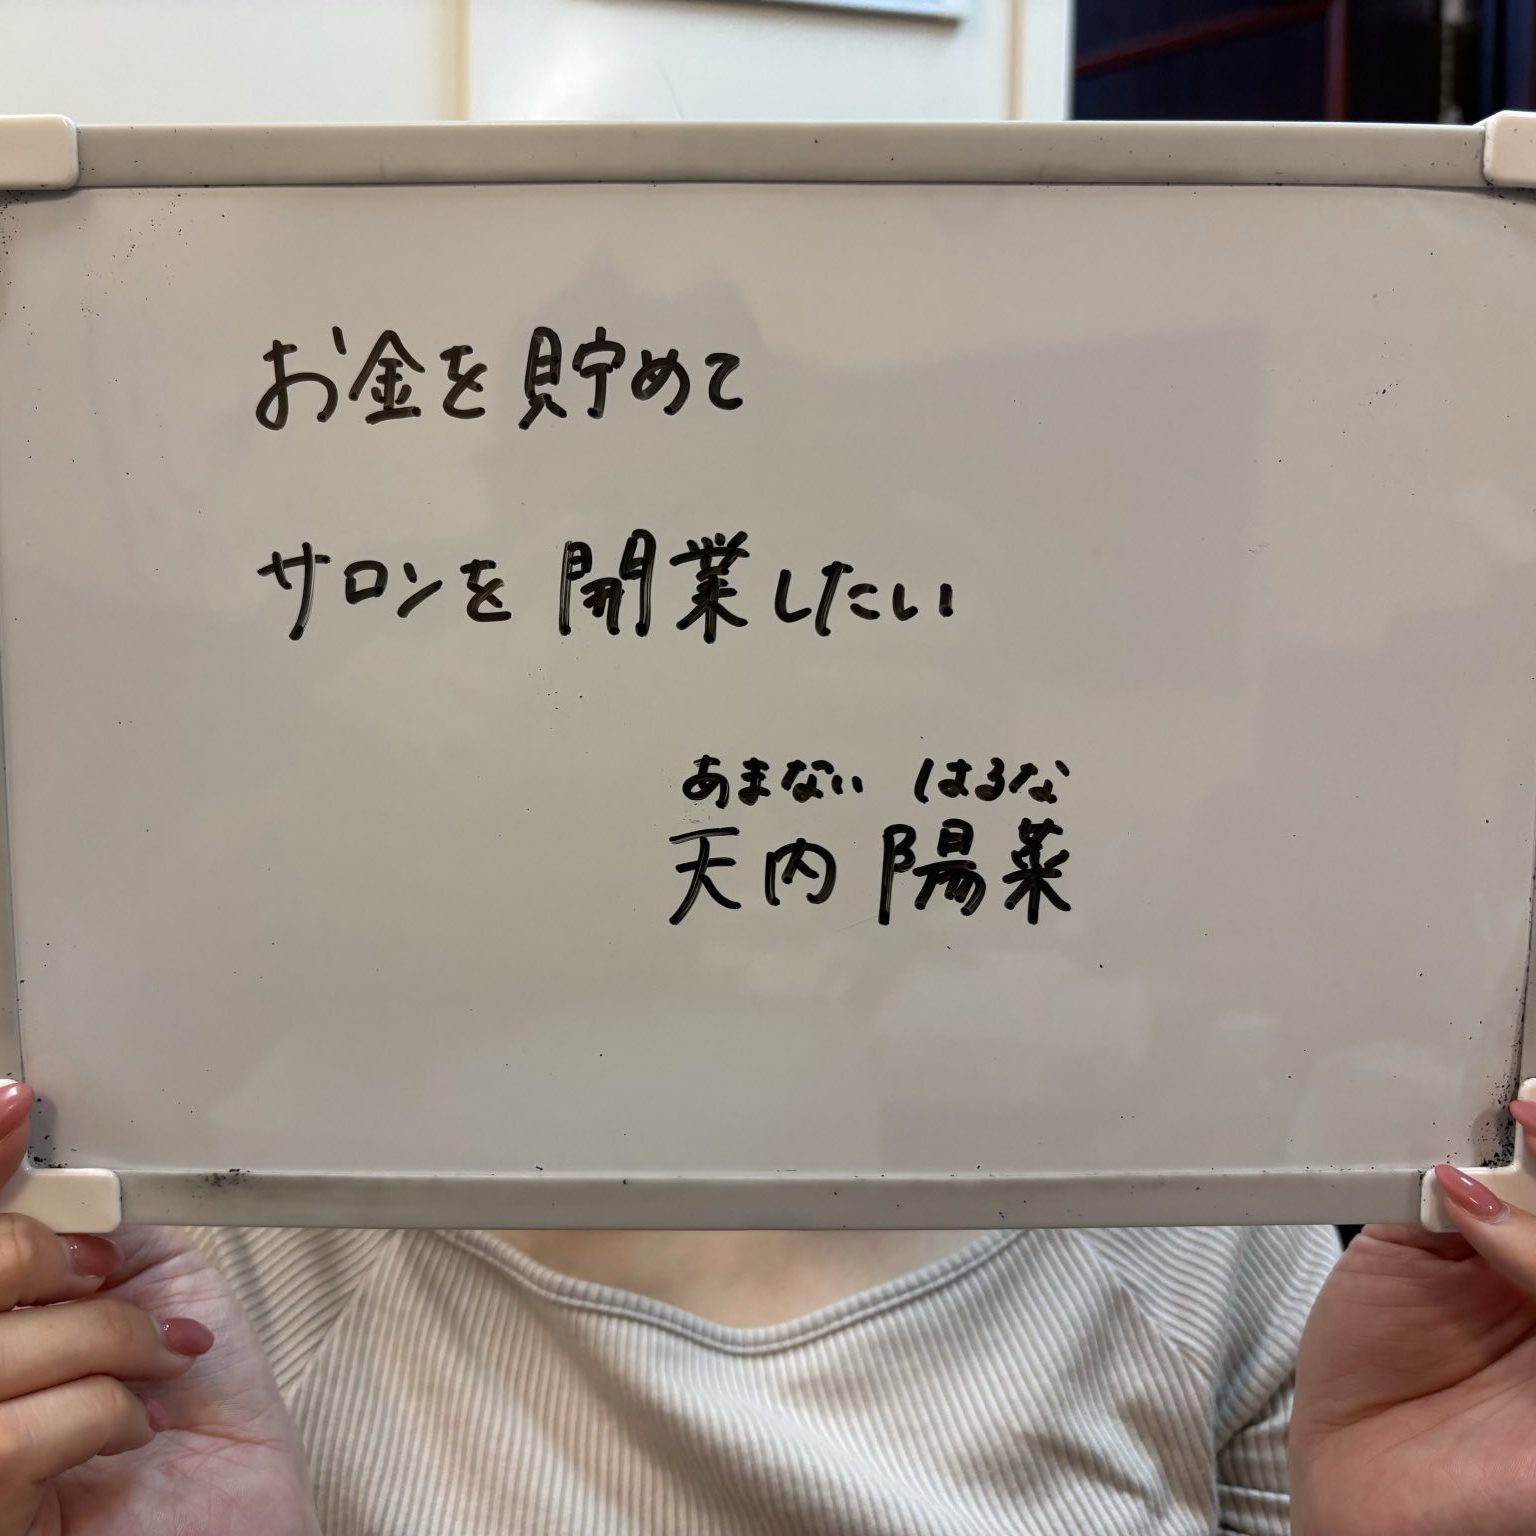 お金を貯めて
サロンを開業したい
あまない はるな
天内 陽菜